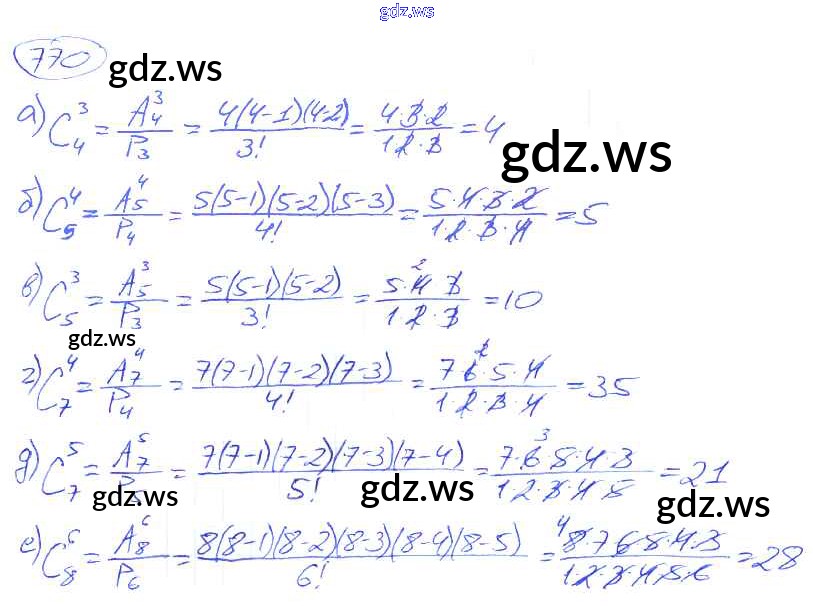 gdz.ws
770
gdz.ws
а) C₄³ = A₄³/P₃ = 4(4-1)(4-2)/3! = 4·3·2/1·2·3 = 4
gdz.ws
б) C₅⁴ = A₅⁴/P₄ = 5(5-1)(5-2)(5-3)/4! = 5·4·3·2/1·2·3·4 = 5
в) C₅³ = A₅³/P₃ = 5(5-1)(5-2)/3! = 5·4·3/1·2·3 = 10
gdz.ws
г) C₇⁴ = A₇⁴/P₄ = 7(7-1)(7-2)(7-3)/4! = 7·6·5·4/1·2·3·4 = 35
д) C₇⁵ = A₇⁵/P₅ = 7(7-1)(7-2)(7-3)(7-4)/5! = 7·6·5·4·3/1·2·3·4·5 = 21
gdz.ws
gdz.ws
gdz.ws
е) C₈⁶ = A₈⁶/P₆ = 8(8-1)(8-2)(8-3)(8-4)(8-5)/6! = 8·7·6·5·4·3/1·2·3·4·5·6 = 28